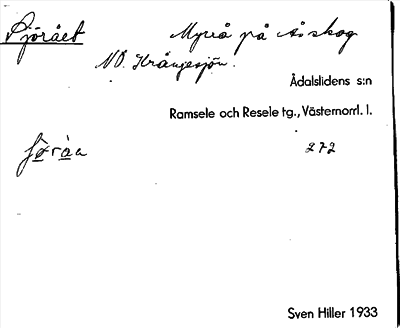 Sjörået Myrå på Åsskog
NO. Krångesjön.
Ådalslidens s:n
Ramsele och Resele tg., Västernorrl. l.
272
Sven Hiller 1933